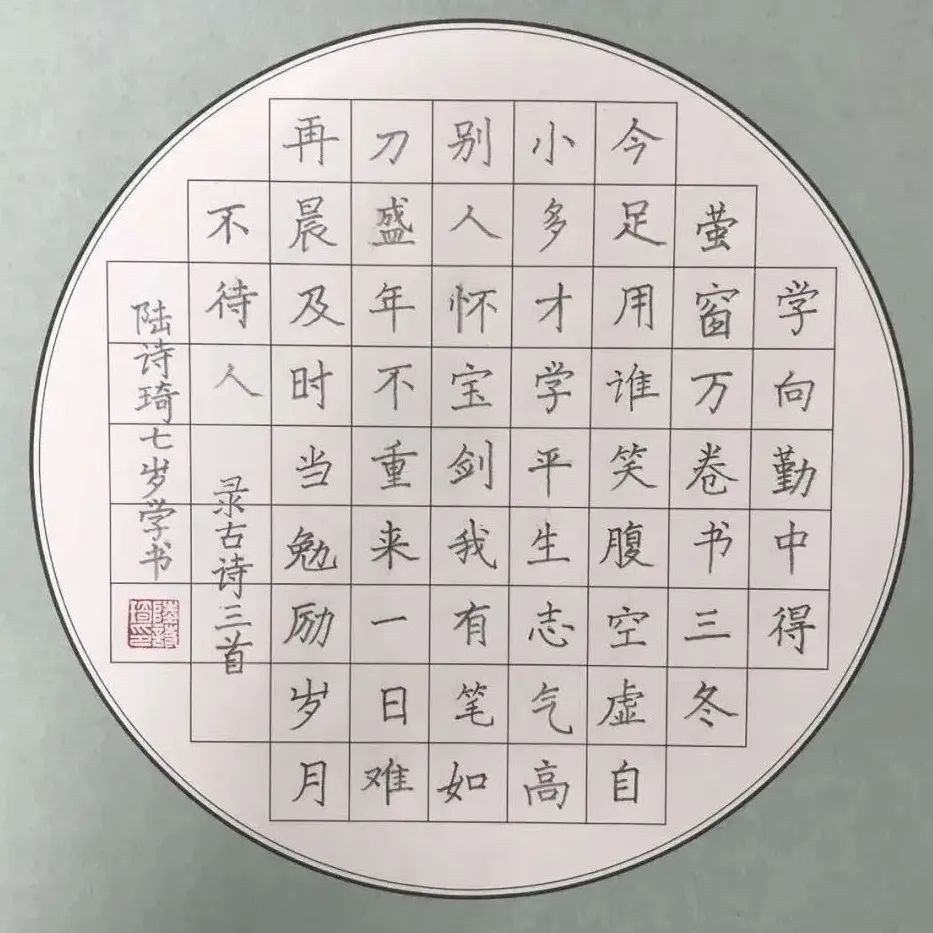 学向勤中得
萤窗万卷书三冬
今足用谁笑腹空虚自
小多才学平生志气高
别人怀宝剑我有笔如
刀盛年不重来一日难
再晨及时当勉励岁月
不待人
录古诗三首
陆诗琦七岁学书